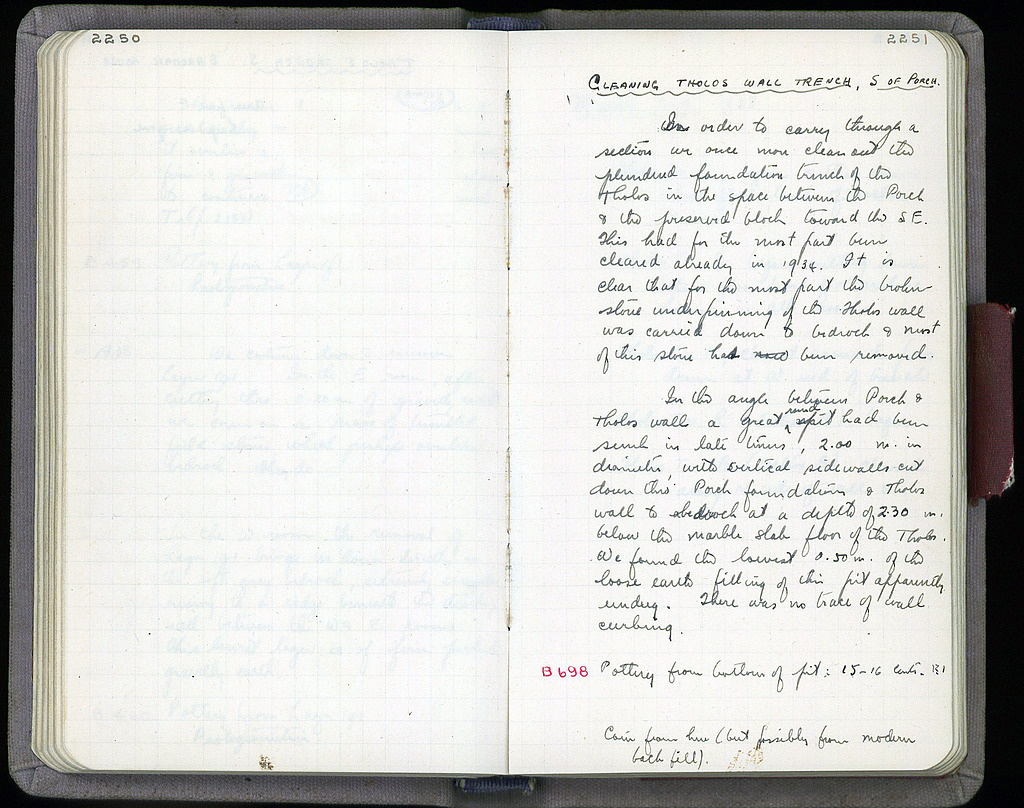 2250
2251
CLEANING THOLOS WALL TRENCH, S OF PORCH.
In order to carry through a
section we once more clean out the
plundered foundation trench of the
Tholos in the space between the Porch
& the preserved block toward the SE.
This had for the most part been
cleared already in 1934. It is
clear that for the most part the broken
stone underpinning of the Tholos wall
was carried down to bedrock & most
of this stone had been removed.
In the angle between Porch &
Tholos wall a great round had been
sunk in late times, 2.00 m. in
diameter, with vertical sidewalls cut
down thro' Porch foundations & Tholos
wall to bedrock at a depth of 2.30 m.
below the marble slab floor of the Tholos.
We found the lowest 0.50 m. of the
loose earth filling of this pit apparently
undug. There was no trace of wall
curbing.
B 698 Pottery from bottom of pit: 15-16 cents.
Coin from here (but possibly from modern
back fill).